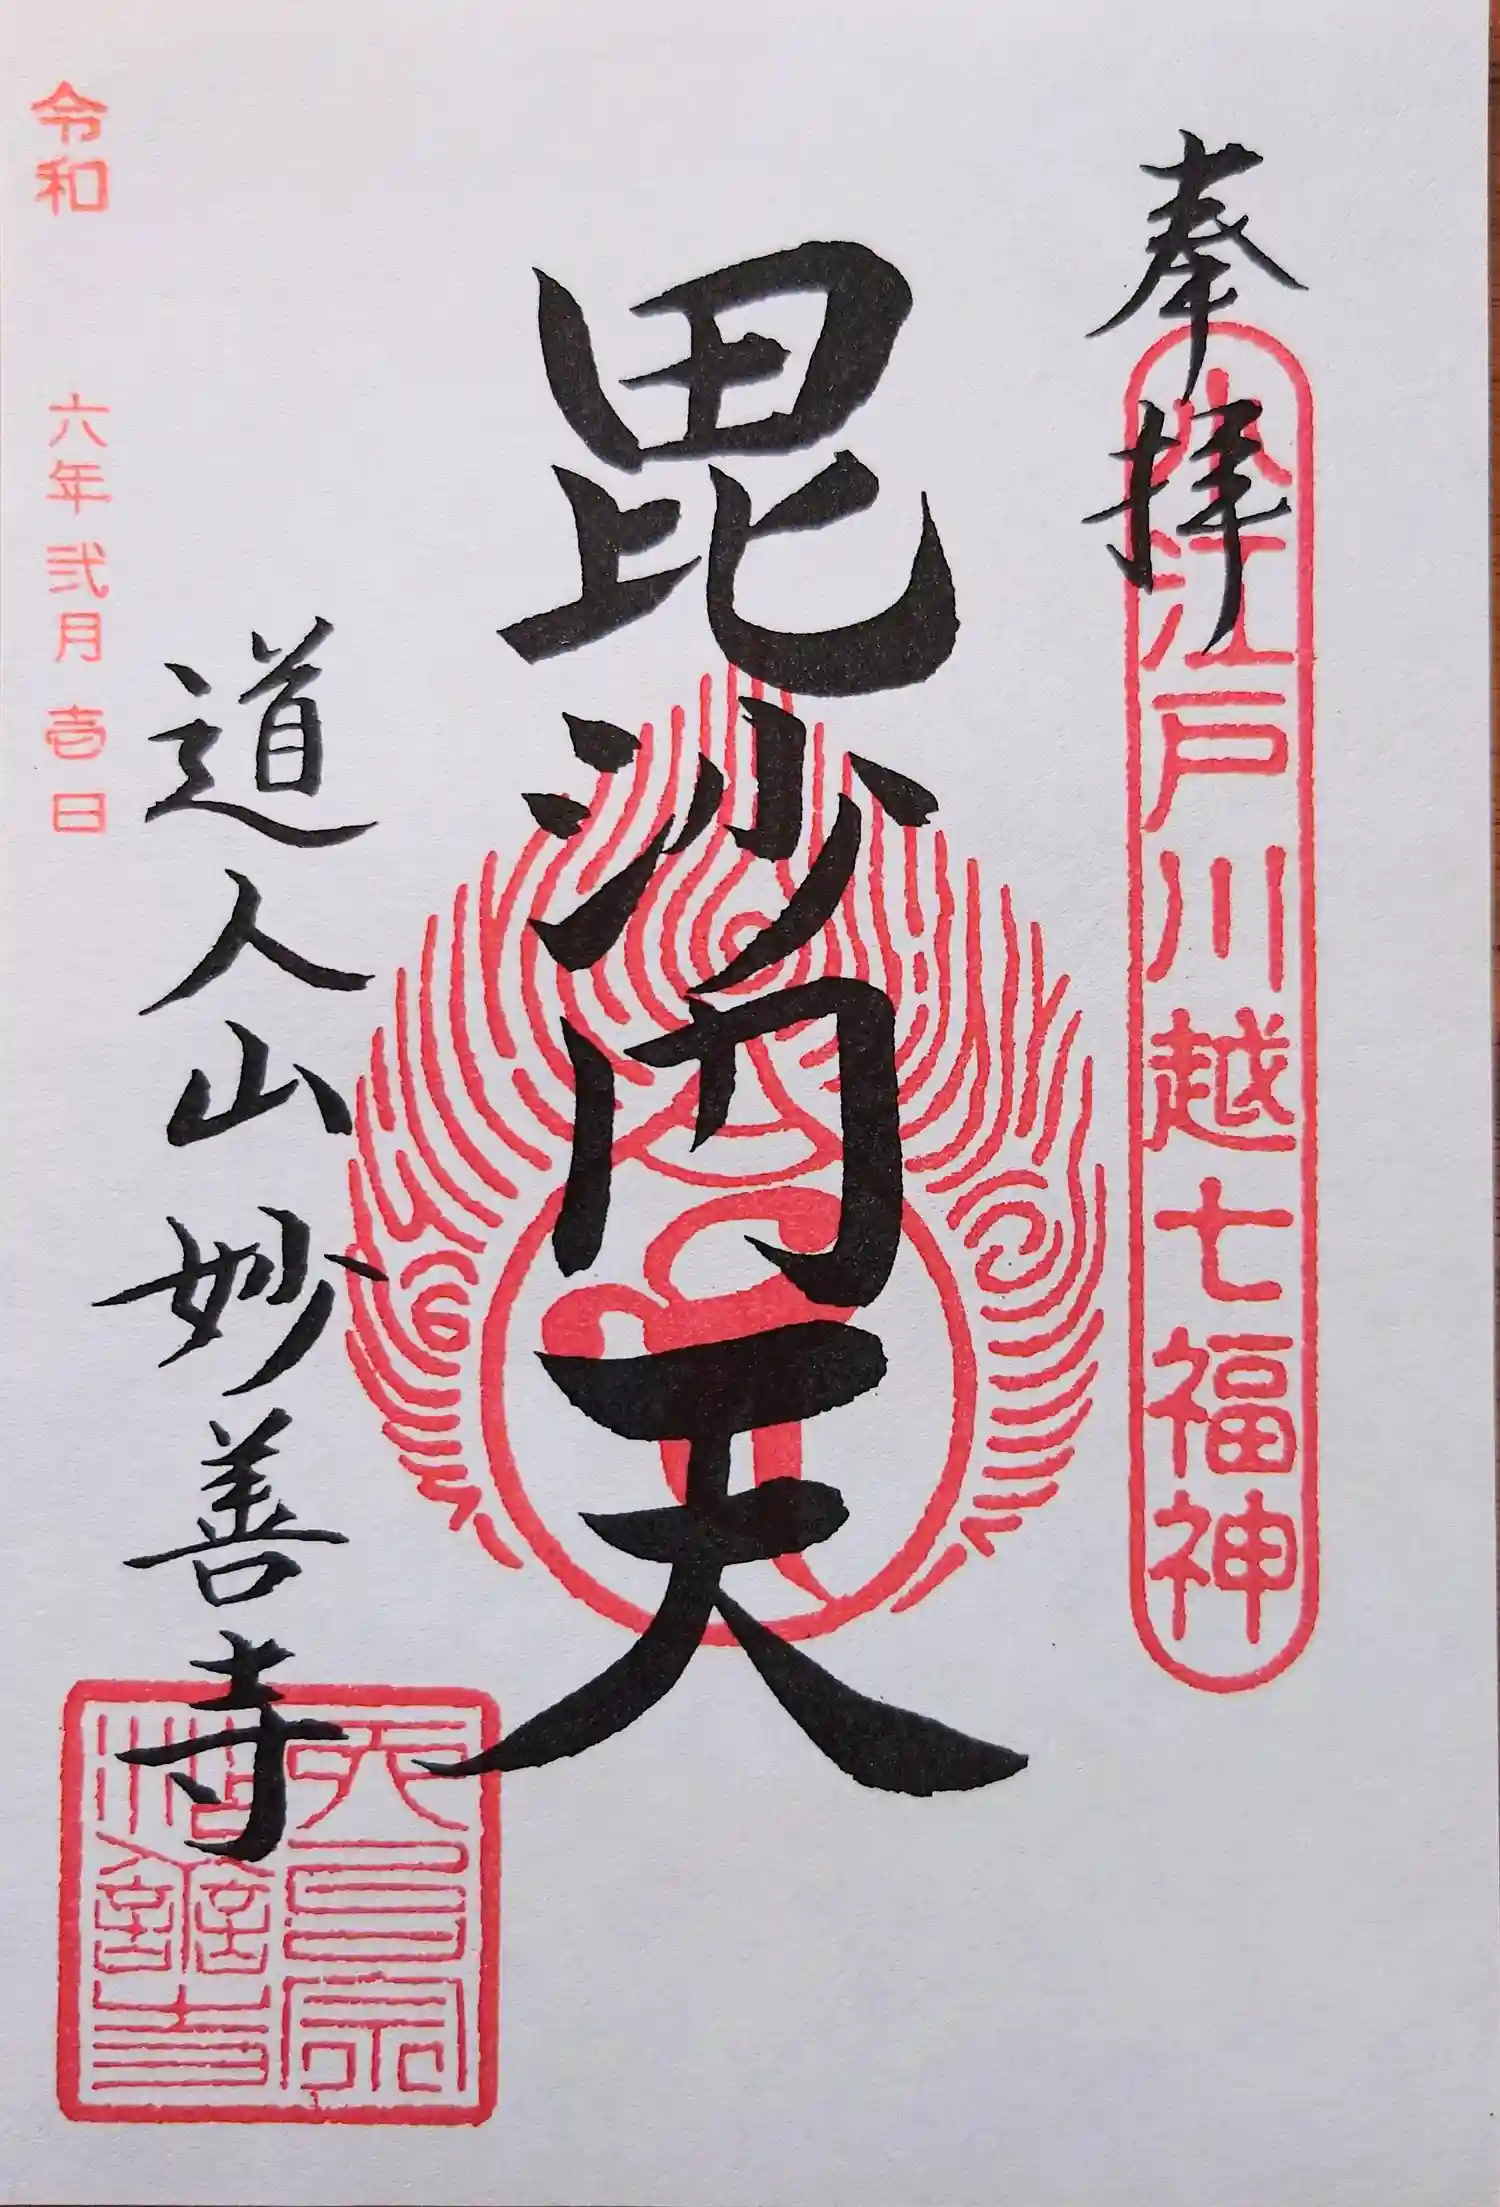 奉拝
小江戸川越七福神
毘沙門天
道人山妙善寺
天台宗
妙善寺
令和 六年 弐月 壱日